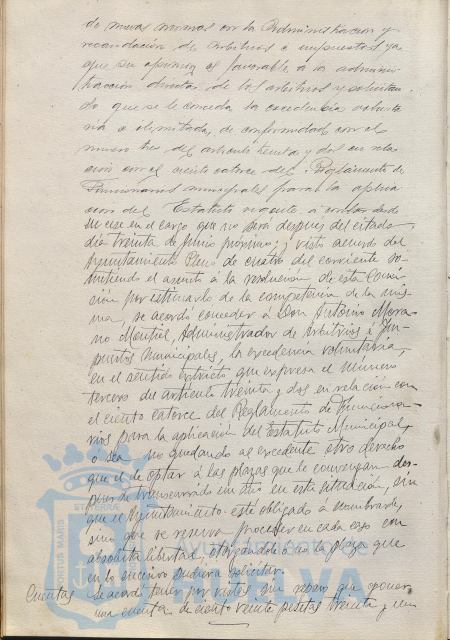 de nuevas normas en la Administración y
recaudación de arbitrios e impuestos, ya
que su opinión es favorable á la adminis-
tracción directa de los arbitrios y solicitan-
do que se le conceda la excedencia volunta-
ria e ilimitada, de conformidad con el
número tres del artículo treinta y dos en rela-
ción con el ciento catorce del Reglamento de
Funcionarios municipales para la aplica-
ción del Estatuto vigente, á contar desde
su cese en el cargo que no será después del citado
día treinta de Junio próximo; y visto acuerdo del
Ayuntamiento Pleno de cuatro del corriente so-
metiendo el asunto á la resolución de esta Comi-
sión por estimarlo de la competencia de la mis-
ma, se acordó conceder á Don Antonio Mora-
no Montiel, Administrador de Arbitrios é Im-
puestos Municipales, la excedencia voluntaria,
en el sentido estricto que expresa el número
tercero del artículo treinta y dos en relación con
el ciento catorce del Reglamento de Funciona-
rios para la aplicación del Estatuto Municipal,
ó sea no quedando al excedente otro derecho
que el de optar á las plazas que le convengan des-
pués de transcurrido un año en esta situación, sin
que el Ayuntamiento esté obligado á nombrarle,
sino que se reserva proceder en cada caso con
absoluta libertad, otorgándole ó no la plaza que
en lo sucesivo pudiera solicitar.
Cuentas Se acordó tener por vistas, sin reparo que oponer,
una cuenta de ciento veinte pesetas treinta y un
PORTUS MARIS
ET TERRAE
Ayuntamiento de
HUELVA